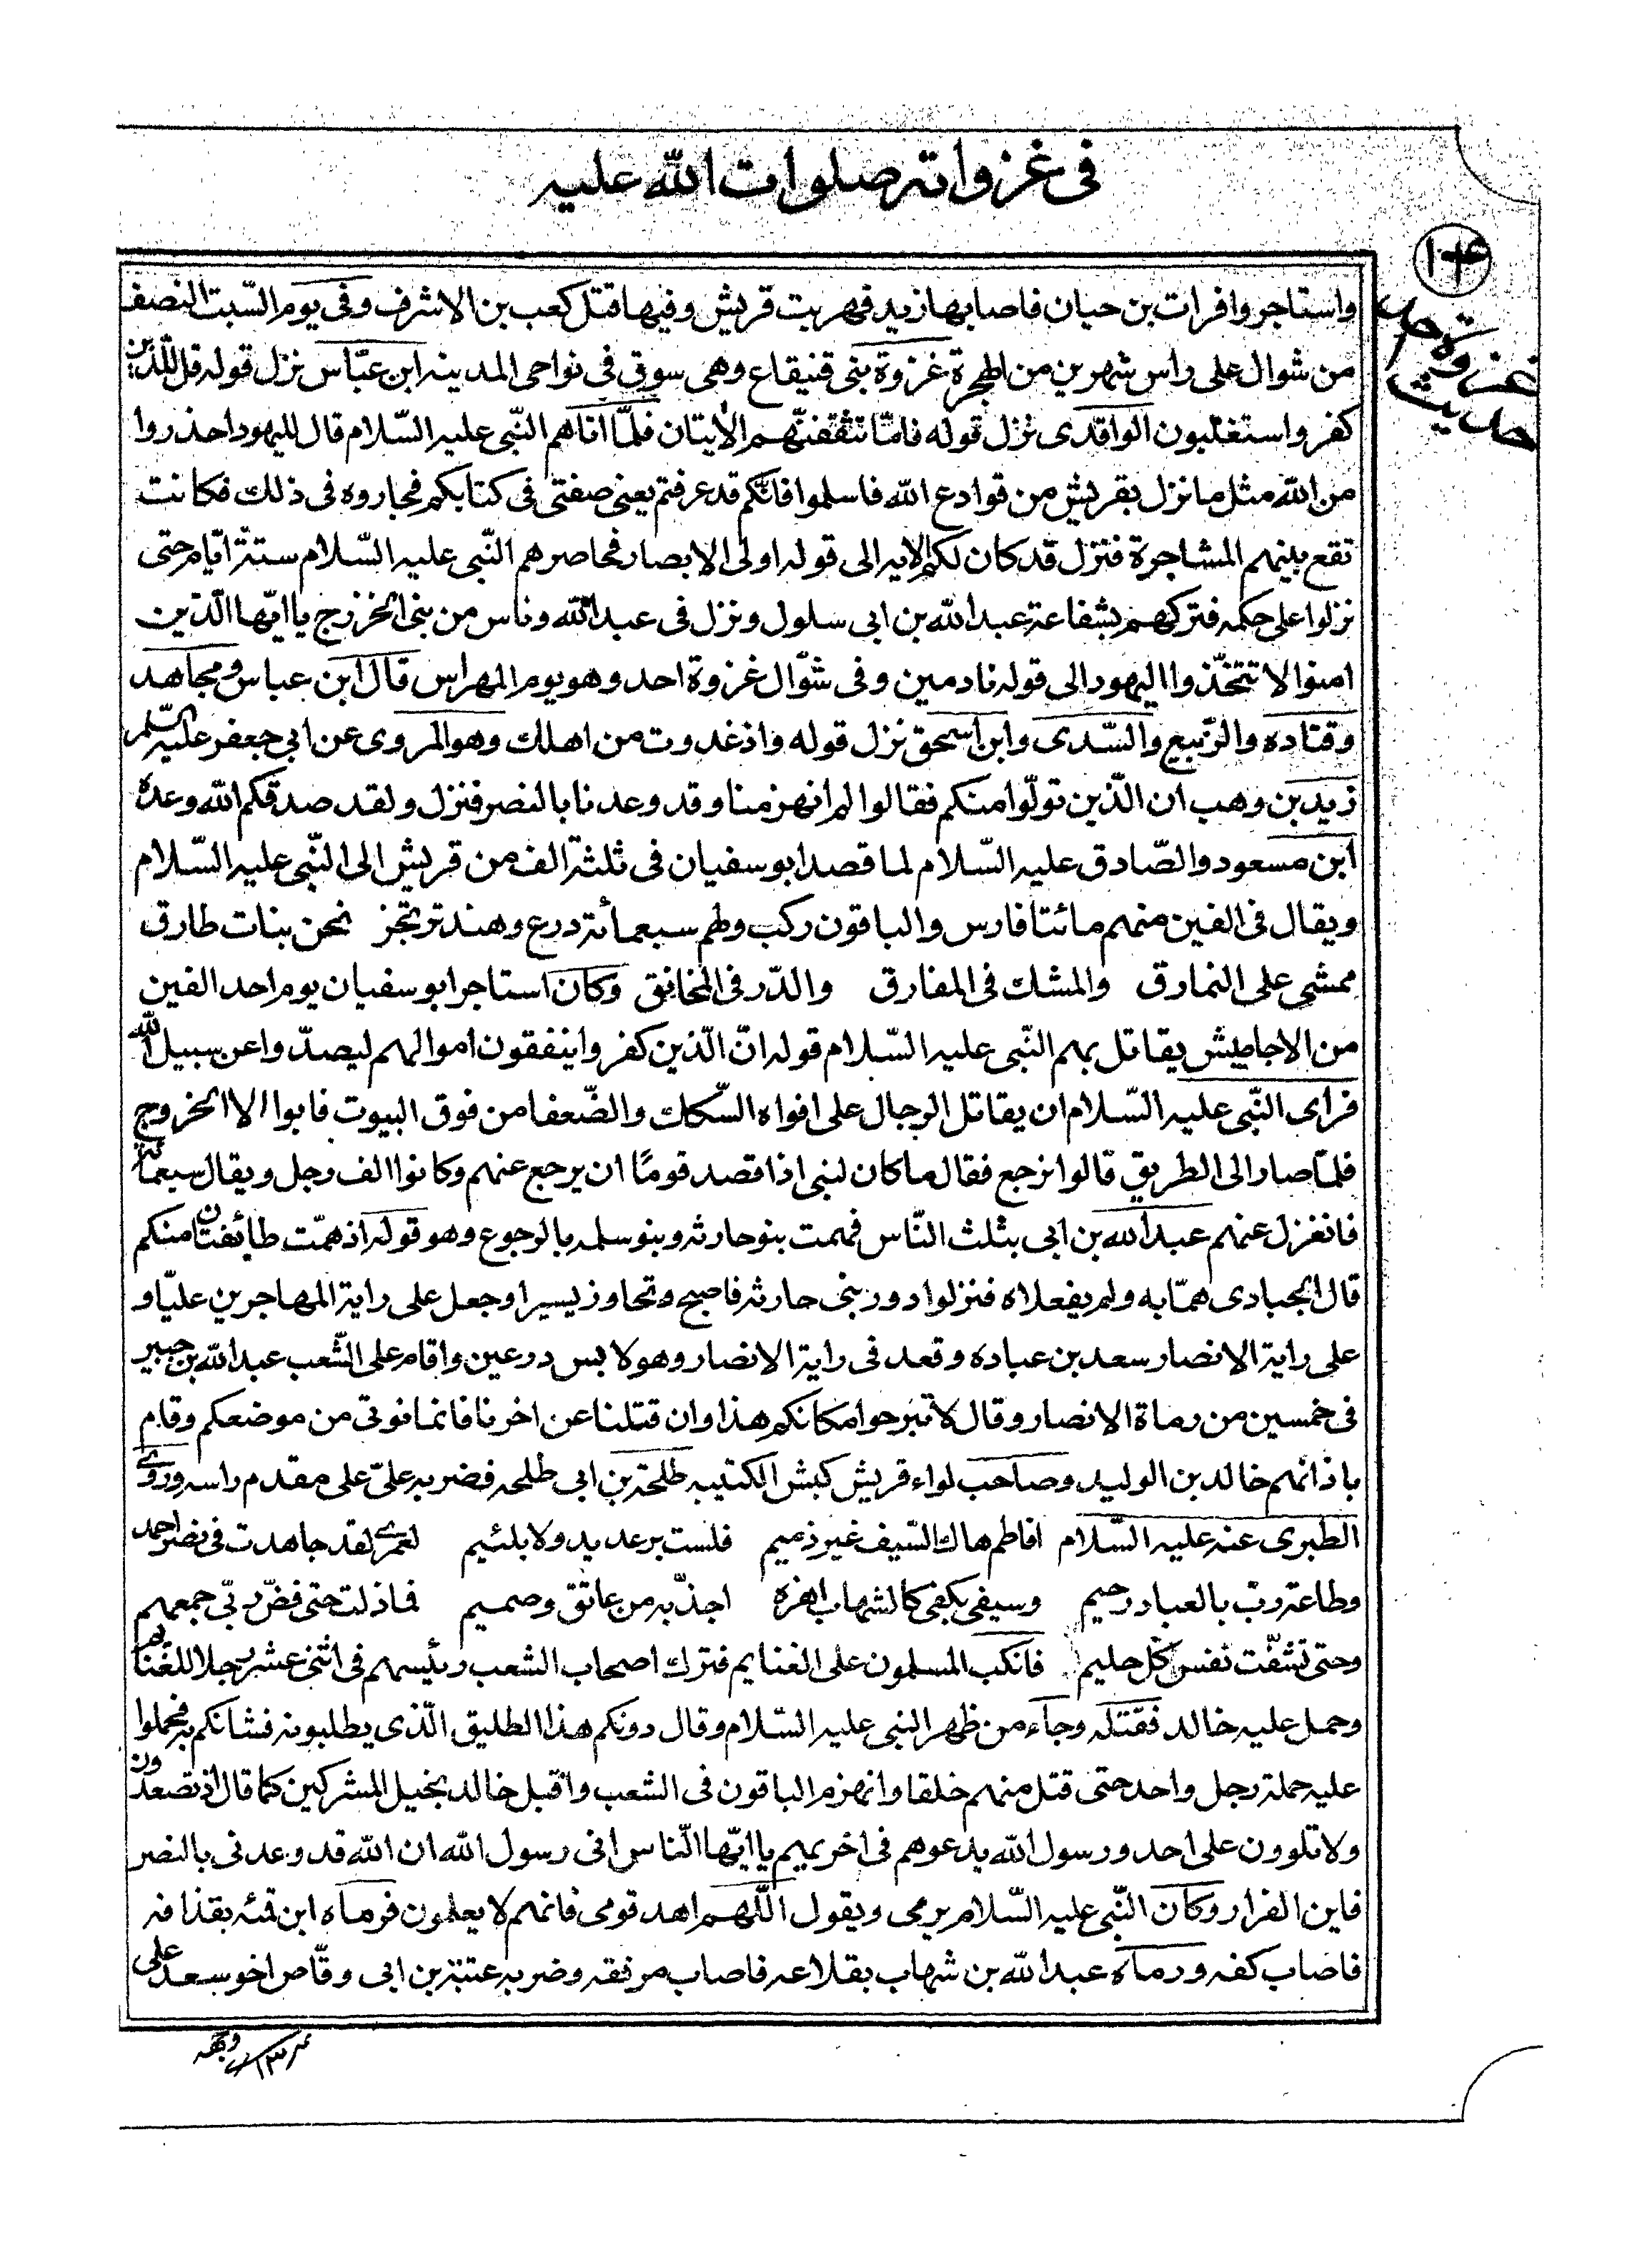 فى غزواته صلوات الله عليه
۱۰۴
واستاجروا فرات بن حيان فاصابها زيد فهربت قريش وفيها قتل كعب بن الاشرف وفى يوم السّبت النصف
من شوال على راس شهرين من الهجرة غزوة بنى قنيقاع وهى سوق فى نواحى المدينه ابن عبّاس نزل قوله قل للّذين
كفروا ستغلبون الواقدى نزل قوله فامّا تثقفنّهم الأيتان فلمّا اتاهم النّبى عليه السّلام قال لليهود احذروا
من الله مثل ما نزل بقريش من قوادع الله فاسلموا فانّكم قد عرفتم يعنى صفتى فى كتابكم فجاروه فى ذلك فكانت
تقع بينهم المشاجرة فنزل قد كان لكم الايه الى قوله اولى الابصار فحاصرهم النّبى عليه السّلام ستة ايّام حتى
نزلوا على حكمه فتركهم بشفاعة عبد الله بن ابى سلول ونزل فى عبد الله وناس من بنى الخزرج يا ايّها الّذين
امنوا لا تتخّذوا اليهود الى قوله نادمين وفى شوّال غزوة احد وهو يوم المهراس قال ابن عباس ومجاهد
وقتاده والرّبيع والسّدى وابن اسحق نزل قوله واذ غدوت من اهلك وهو المروى عن ابى جعفر عليه السّلم
زيد بن وهب ان الّذين تولّوا منكم فقالوا لم انهزمنا وقد وعدنا بالنصر فنزل ولقد صدقكم الله وعده
ابن مسعود والصّادق عليه السّلام لما قصد ابو سفيان فى ثلثة الف من قريش الى النّبى عليه السّلام
ويقال فى الفين منهم مائتا فارس والباقون ركب ولهم سبعمائة درع وهند ترتجز نحن بنات طارق
ممشى على النمارق والمشك فى المفارق والدّر فى المخانق وكان استاجر ابو سفيان يوم احد الفين
من الاحابيش يقاتل بهم النّبى عليه السّلام قوله انّ الّذين كفروا ينفقون اموالهم ليصدّوا عن سبيل الله
فراى النّبى عليه السّلام ان يقاتل الرجال على افواه السّكك والضّعفا من فوق البيوت فابوا الا الخروج
فلمّا صار الى الطريق قالوا نرجع فقال ما كان لنبى اذا قصد قومًا ان يرجع عنهم وكانوا الف رجل ويقال سبعمائة
فانغزل عنهم عبد الله بن ابى بثلث النّاس فهمت بنو حارثه وبنو سلمه بالرجوع وهو قوله اذ همّت طائفتان منكم
قال الجبادى همّا به ولم يفعلاه فنزلوا دور بنى حارثه فاصبح وتجاوز يسيرا وجعل على راية المهاجرين عليّا و
على راية الانصار سعد بن عباده وقعد فى راية الانصار وهو لابس درعين واقام على الشّعب عبد الله بن جبير
فى خمسين من رماة الانصار وقال لا تبرحوا مكانكم هذا وان قتلنا عن اخرنا فانما نوتى من موضعكم وقام
باذائهم خالد بن الوليد وصاحب لواء قريش كبش الكتيبه طلحة بن ابى طلحه فضربه علىّ على مقدم راسه وروى
الطبرى عنه عليه السّلام افاطم هاك السّيف غير ذميم فلست برعديد ولا بلئيم لعمرى لقد جاهدت فى نصر احمد
وطاعة رب بالعباد رحيم وسيفى بكفى كالشهاب اهزه اجذّ به من عاتق وصميم فما ذلت حتى فضّ ربّى جمعهم
وحتى تشفّت نفس كل حليم فانكب المسلمون على الغنايم فترك اصحاب الشعب رئيسهم فى اثنى عشر رجلا للغنائم
وحمل عليه خالد فقتله وجاء من ظهر النبى عليه السّلام وقال دونكم هذا الطليق الّذى يطلبونه فشانكم به فحملوا
عليه حملة رجل واحد حتى قتل منهم خلقا وانهزم الباقون فى الشعب واقبل خالد بخيل المشركين كما قال اذ تصعدون
ولا تلوون على احد ورسول الله يدعوهم فى اخريهم يا ايّها النّاس انى رسول الله ان الله قد وعدنى بالنصر
فاين الفرار وكان النّبى عليه السّلام يرمى ويقول اللّهم اهد قومى فانهم لا يعلمون فرماه ابن قمئه بقذافه
فاصاب كفه ورماه عبد الله بن شهاب بقلاعه فاصاب مرفقه وضربه عتبة بن ابى وقّاص اخو سعد على
وجهه